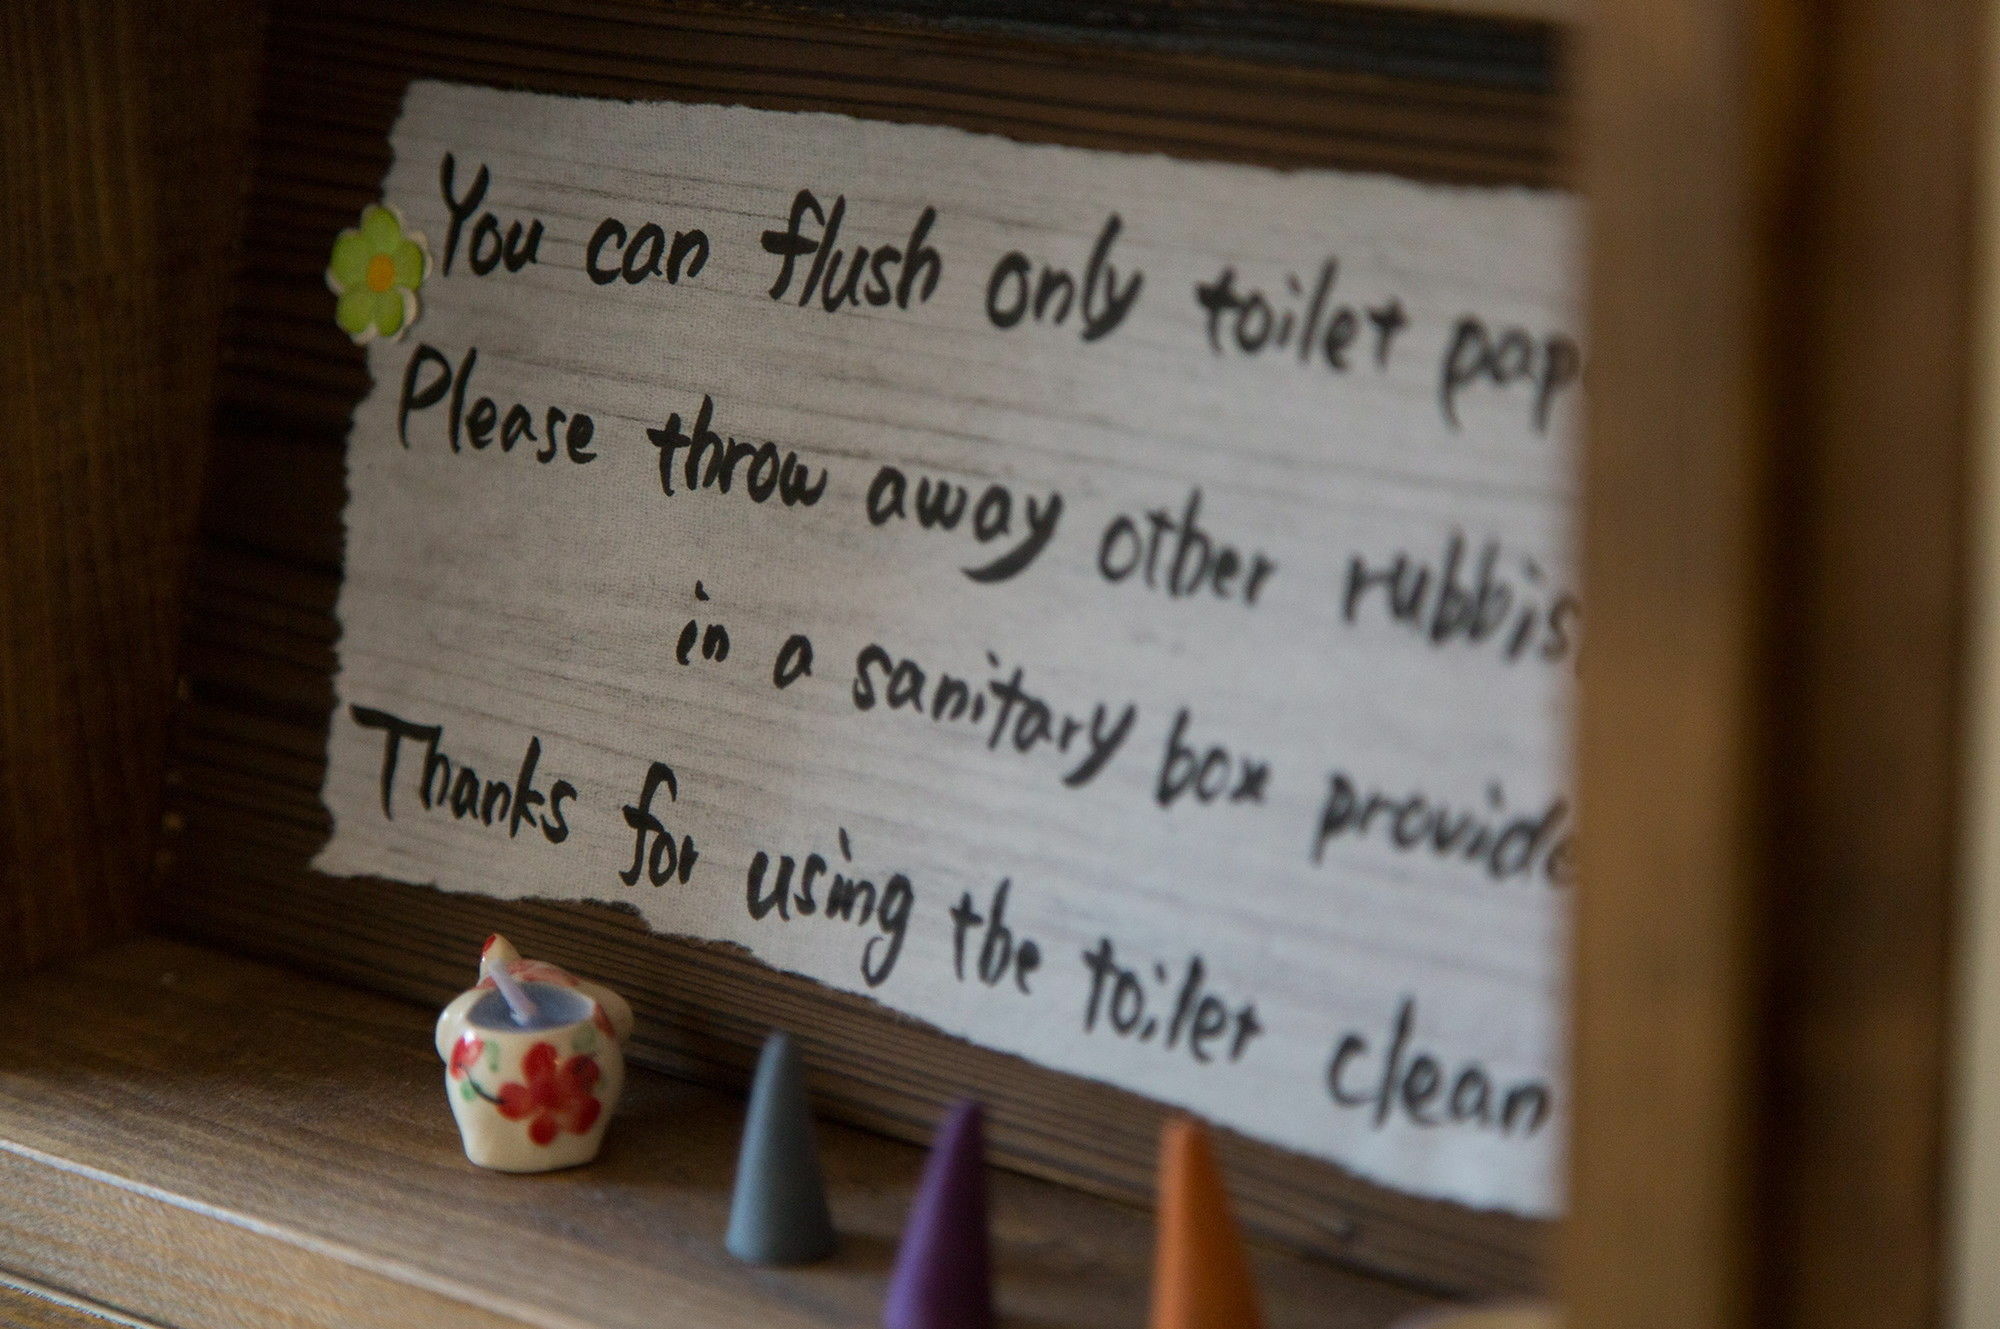 You can flush only toilet pap
Please throw away other rubbis
in a sanitary box provide
Thanks for using the toilet clean